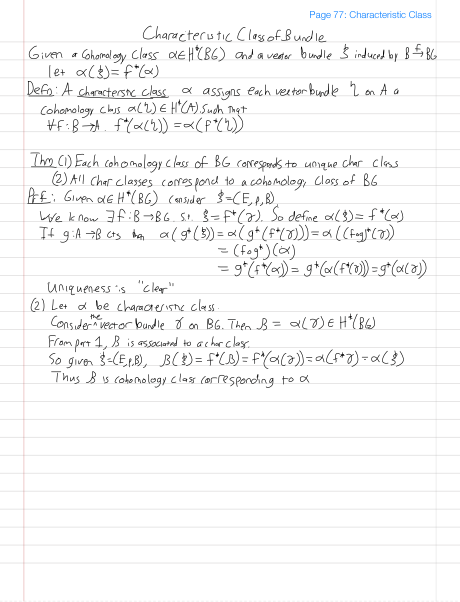 Page 77: Characteristic Class
Characteristic Class of Bundle
Given a Cohomology Class α∈H*(BG) and a vector bundle ξ induced by B →f BG
let α(ξ) = f*(α)
Defn: A characterstic class α assigns each vector bundle η on A a
cohomology class α(η) ∈ H*(A) such that
∀f: B→A. f*(α(η)) = α(f*(η))
Thm (1) Each cohomology class of BG corresponds to unique char class
(2) All char classes correspond to a cohomology class of BG
Prf: Given α∈H*(BG) consider ξ=(E,p,B)
We know ∃f: B→BG s.t. ξ = f*(γ). So define α(ξ) = f*(α)
If g: A→B cts then α(g*(ξ)) = α(g*(f*(γ))) = α((f∘g)*(γ))
= (f∘g*)(α)
= g*(f*(α)) = g*(α(f*(γ)) = g*(α(γ))
Uniqueness is "clear"
(2) Let α be characteristic class.
Consider the vector bundle γ on BG. Then β = α(γ) ∈ H*(BG)
From part 1, β is associated to a char class.
So given ξ=(E,p,B), β(ξ) = f*(β) = f*(α(γ)) = α(f*γ) = α(ξ)
Thus β is cohomology class corresponding to α